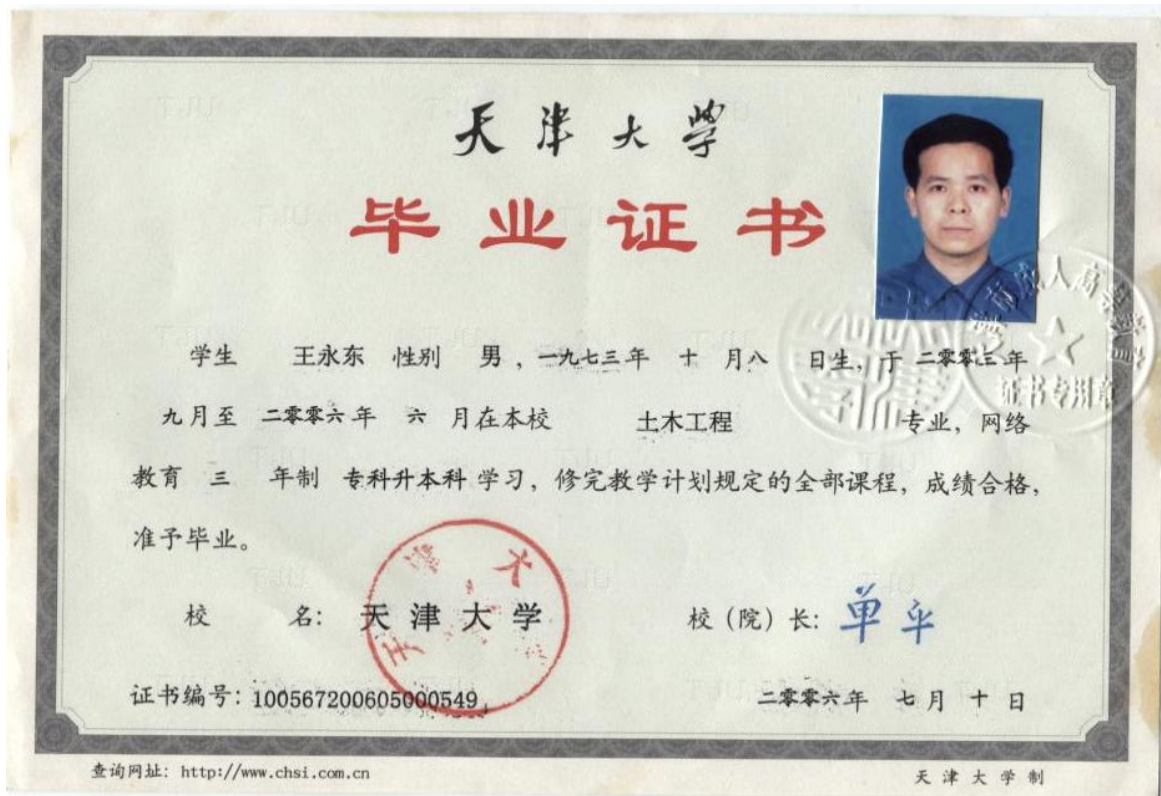 天津大学
毕业证书
学生 王永东 性别 男，一九七三年 十 月八 日生，于 二零零三年
九月至 二零零六年 六 月在本校 土木工程 专业，网络
教育 三 年制 专科升本科 学习，修完教学计划规定的全部课程，成绩合格，
准予毕业。
校 名：天津大学 校（院）长：单平
证书编号：100567200605000549 二零零六年 七月 十日
查询网址：http://www.chsi.com.cn 天津大学制
证书专用章
天津大